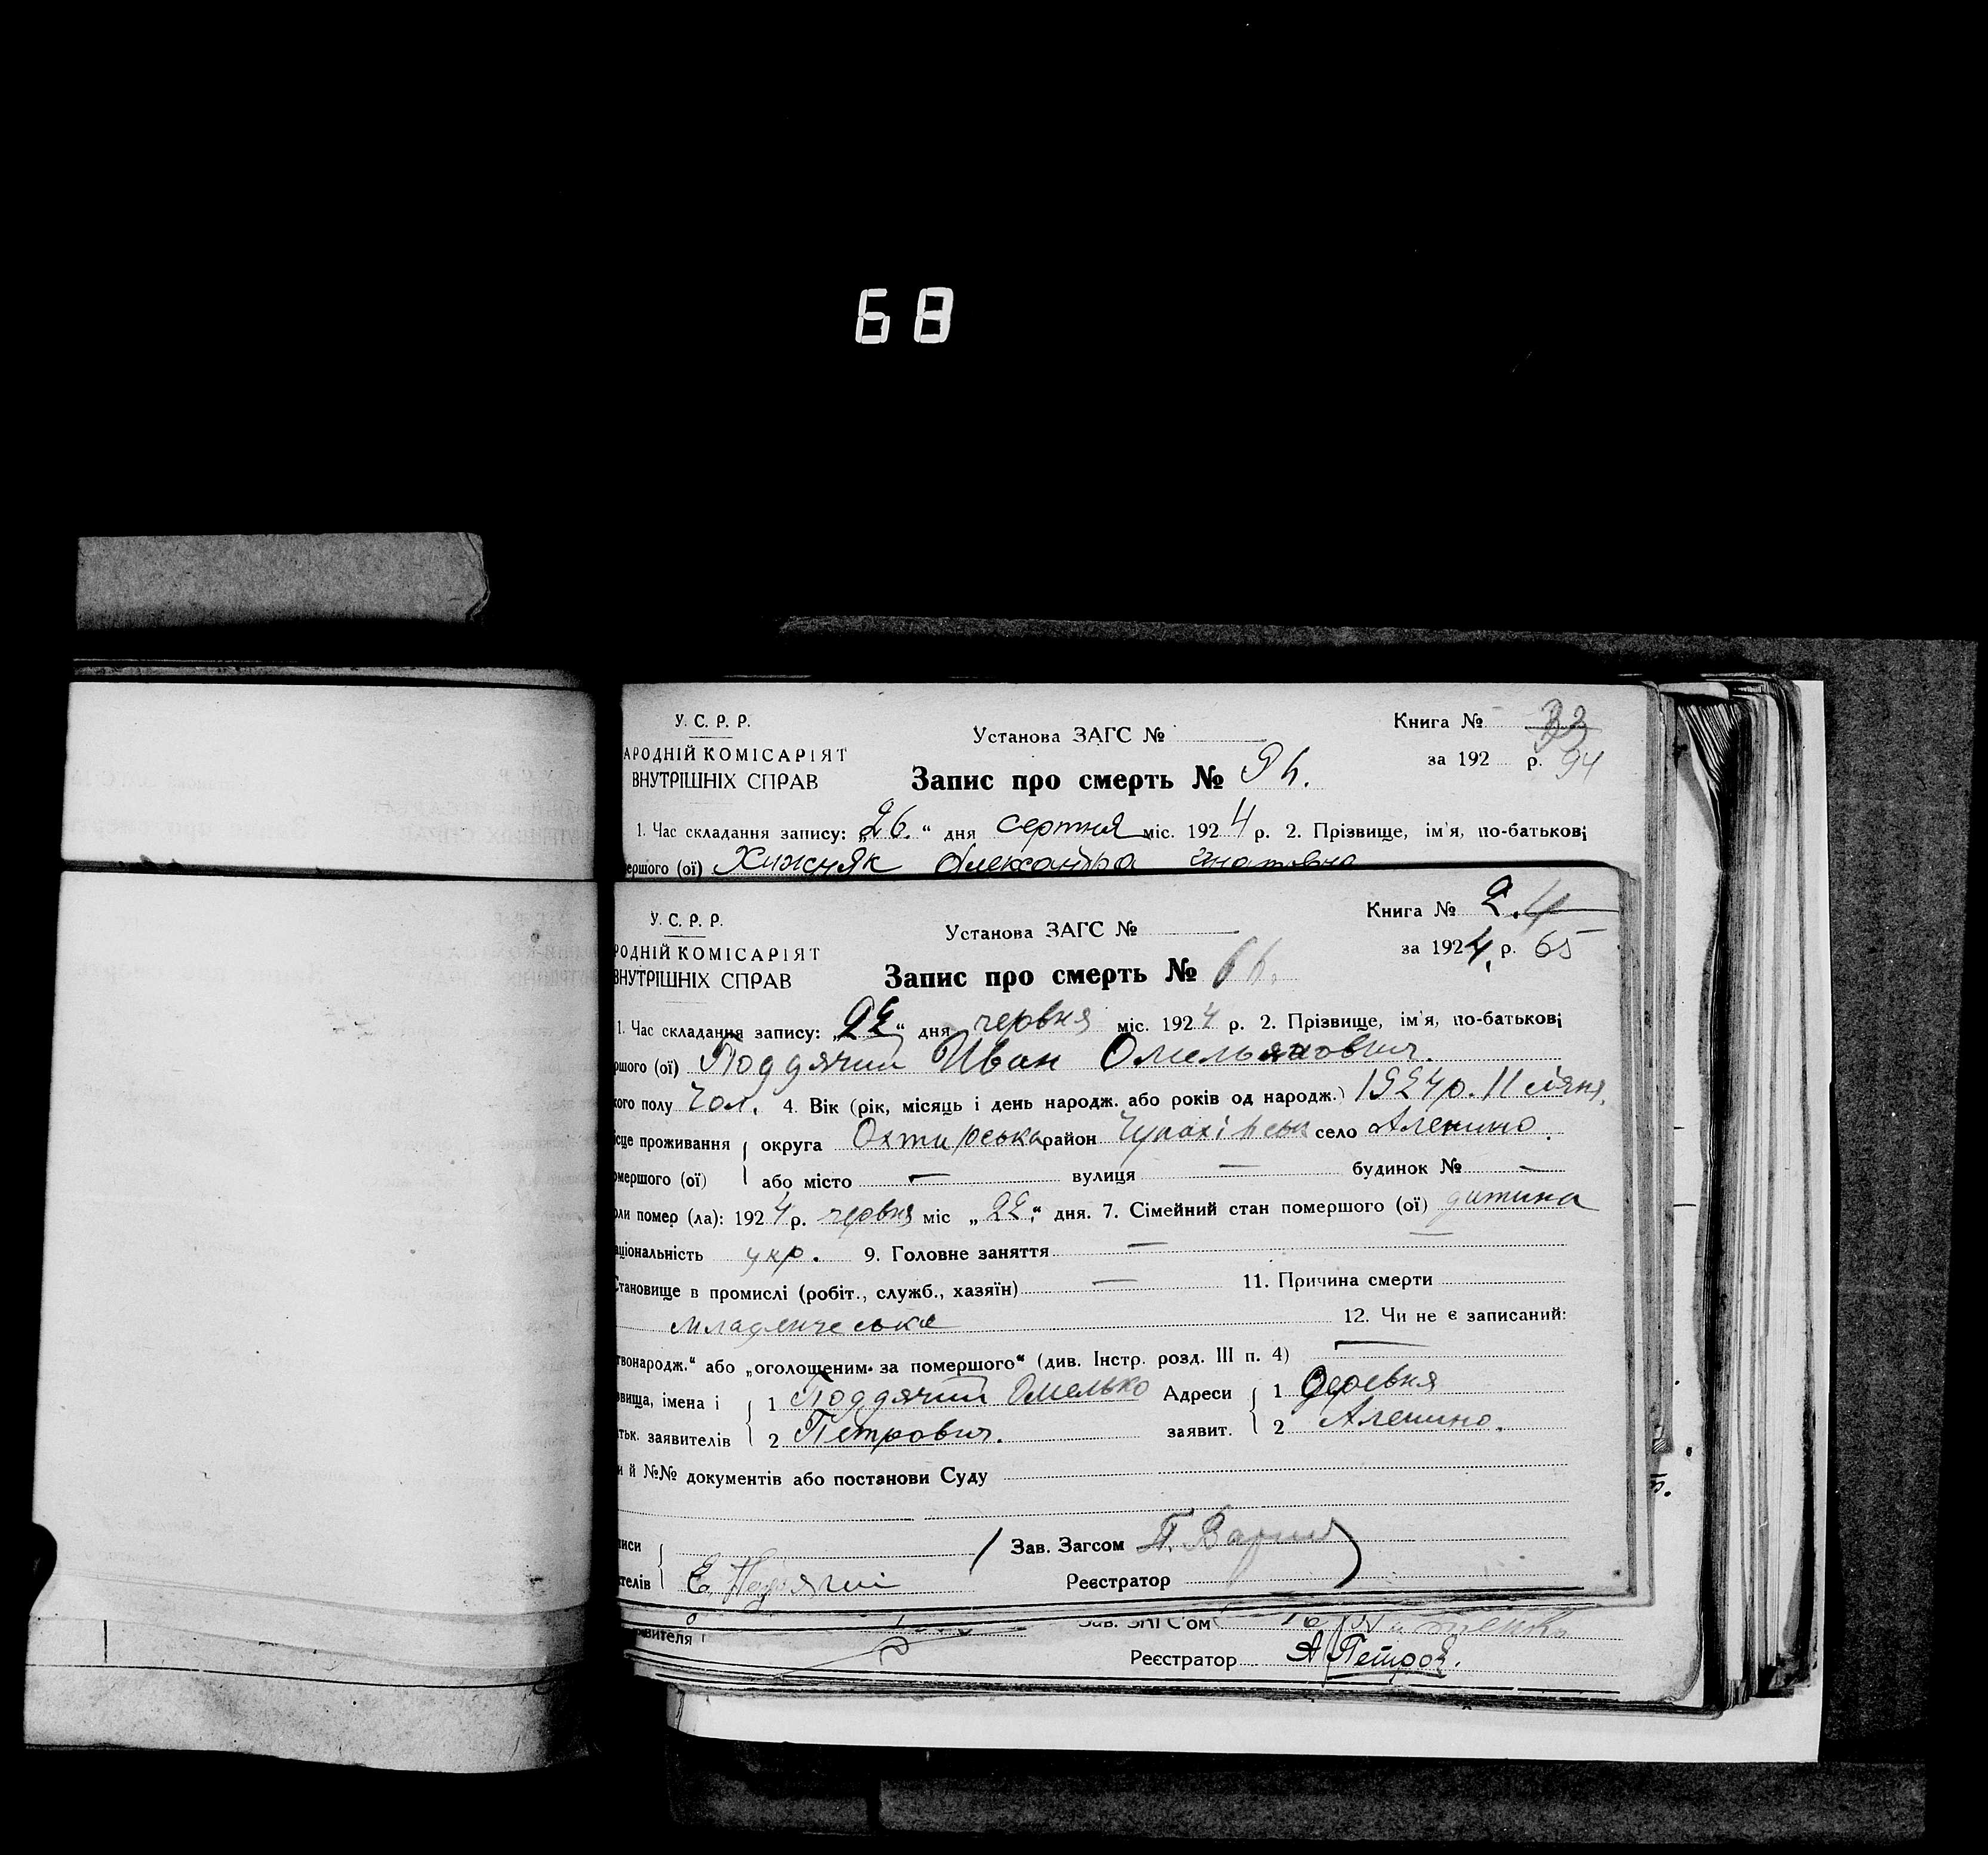 68
У. С. Р. Р.
АРОДНІЙ КОМІСАРІЯТ
ВНУТРІШНІХ СПРАВ
Установа ЗАГС №
Книга № 33
за 192 р. 94
Запис про смерть №
1. Час складання запису: „26.“ дня серпня міс. 1924 р. 2. Прізвище, ім'я, по-батькові
ершого (ої) Хижняк Олександра
У. С. Р. Р.
РОДНІЙ КОМІСАРІЯТ
ВНУТРІШНІХ СПРАВ
Установа ЗАГС №
Книга № 2.4
за 1924 р. 65
Запис про смерть №
1. Час складання запису: „22“ дня червня міс. 1924 р. 2. Прізвище, ім'я, по-батькові
ршого (ої) Поддячий Иван Омельянович.
кого полу Чол. 4. Вік (рік, місяць і день народж. або років од народж.) 1924 р. 11
ісце проживання округа Охтирська район село Аленино.
омершого (ої) або місто — вулиця — будинок № —
оли помер (ла): 1924 р. червня міс „22“ дня. 7. Сімейний стан помершого (ої) дитина
аціональність укр. 9. Головне заняття —
Становище в промислі (робіт., служб., хазяїн) — 11. Причина смерти
младенческа 12. Чи не є записаний:
твонародж.“ або „оголошеним за помершого“ (див. Інстр. розд. III п. 4) —
звища, імена і 1 Поддячий Омелько Адреси 1 Деревня
атьк. заявителів 2 Петрович. заявит. 2 Аленино.
и й №№ документів або постанови Суду
писи Зав. Загсом П.
ителів Е. Реєстратор
Зав. ЗАГС'ом
вителя
Реєстратор А Петров.